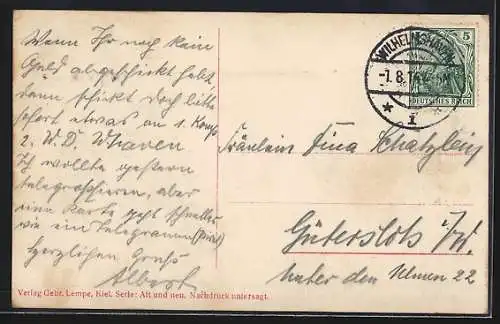 Wenn Ihr noch kein
Geld abgeschickt habt,
dann schickt doch bitte
sofort etwas an 1. Komp.
2. W.D. W'haven
Ich wollte gestern
telegraphieren, aber
eine Karte geht schneller
wie ein Telegramm
Herzlichen Gruß
Albert
Verlag Gebr. Lempe, Kiel. Serie: Alt und neu. Nachdruck untersagt.
WILHELMSHAVEN
-7.8.14
* 1 *
5
DEUTSCHES REICH
Fräulein Tina Schatzlein
Gütersloh i/W.
Unter den Ulmen 22